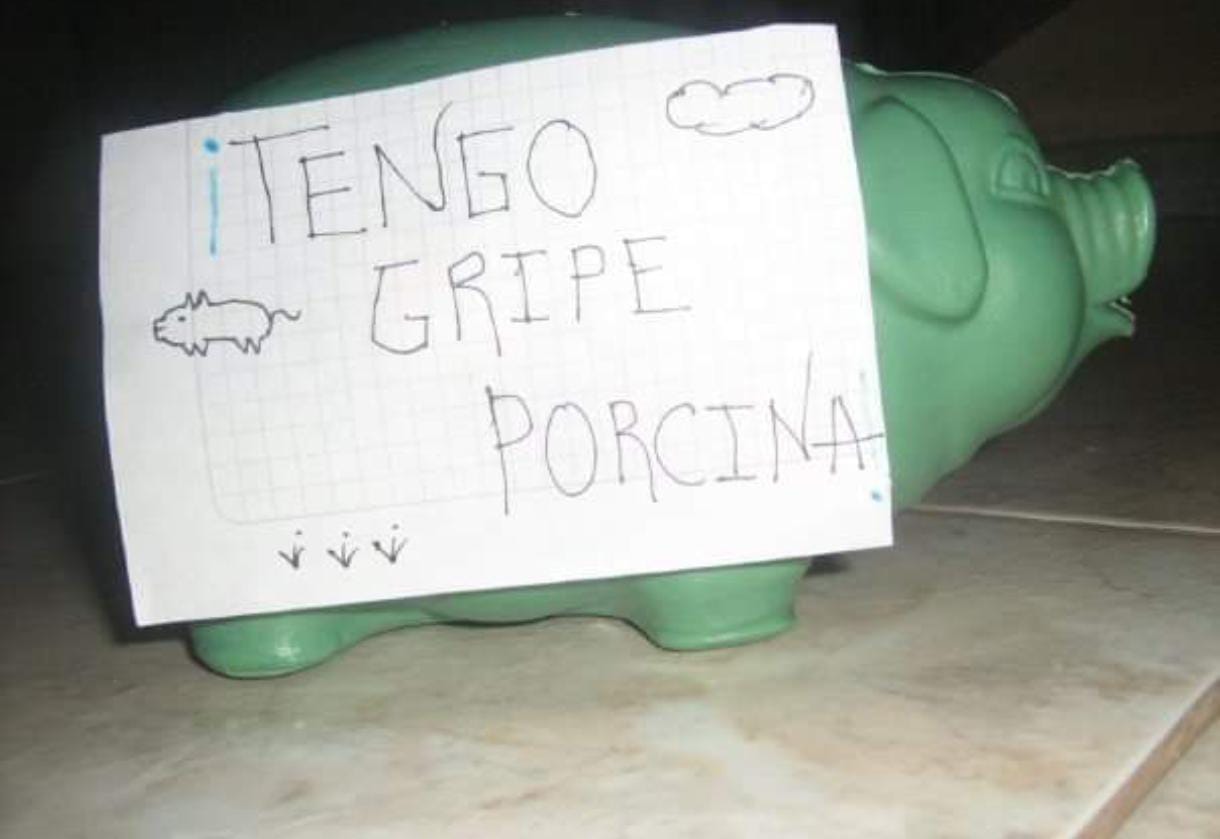 ¡TENGO
GRIPE
PORCINA!